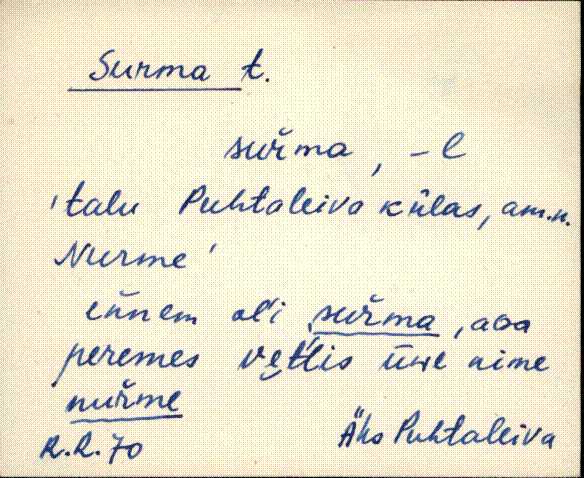 Surma t.
sur̆ma, -l
'talu Puhtaleiva külas, am.n.
Nurme'
eńnem ol'i sur̆ma, aga
peremes vẹt́lis ūwe nime
nur̆me
R.R.70 Äks Puhtaleiva